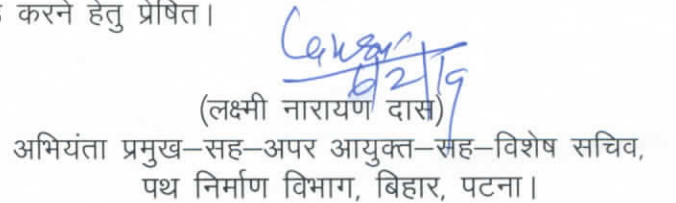 करने हेतु प्रेषित।
6/2/19
(लक्ष्मी नारायण दास)
अभियंता प्रमुख–सह–अपर आयुक्त–सह–विशेष सचिव,
पथ निर्माण विभाग, बिहार, पटना।